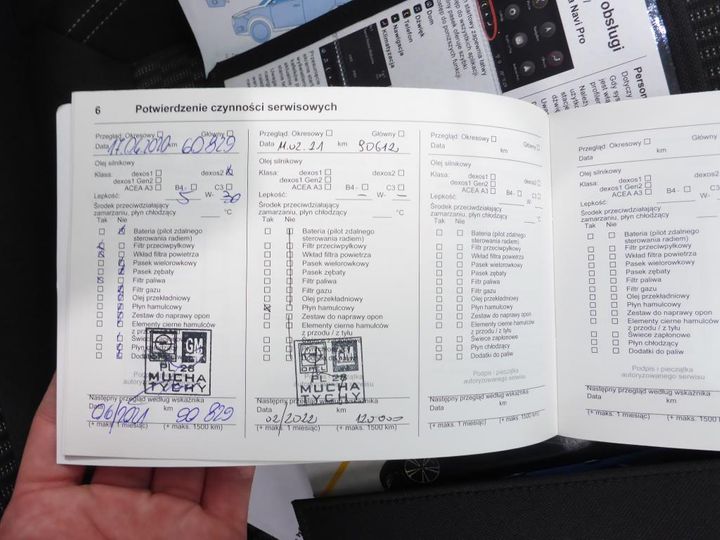 obsługi
Navi Pro
Dom
Dźwięk
Telefon
Nawigacja
Klimatyzacja
6 Potwierdzenie czynności serwisowych
Przegląd: Okresowy Główny
Data 17.06.2020 km 60 829
Olej silnikowy
Klasa: dexos1 dexos2
dexos1 Gen2
ACEA A3 B4- C3
Lepkość: 5 W- 30
Środek przeciwdziałający
zamarzaniu, płyn chłodzący °C
Tak Nie
Bateria (pilot zdalnego
sterowania radiem)
Filtr przeciwpyłkowy
Wkład filtra powietrza
Pasek wielorowkowy
Pasek zębaty
Filtr paliwa
Filtr gazu
Olej przekładniowy
Płyn hamulcowy
Zestaw do naprawy opon
Elementy cierne hamulców
z przodu / z tyłu
Świece
Płyn
Dodatki
GM
PL 28
MUCHA
TYCHY
Następny przegląd według wskaźnika
Data km
06/2021 90 829
(+ maks. 1 miesiąc) (+ maks. 1500 km)
Przegląd: Okresowy Główny
Data 11.02.21 km 90612
Olej silnikowy
Klasa: dexos1 dexos2
dexos1 Gen2
ACEA A3 B4- C3
Lepkość: — W- —
Środek przeciwdziałający
zamarzaniu, płyn chłodzący °C
Tak Nie
Bateria (pilot zdalnego
sterowania radiem)
Filtr przeciwpyłkowy
Wkład filtra powietrza
Pasek wielorowkowy
Pasek zębaty
Filtr paliwa
Filtr gazu
Olej przekładniowy
Płyn hamulcowy
Zestaw do naprawy opon
Elementy cierne hamulców
z przodu / z tyłu
Świece zapłonowe
Płyn chłodzący
Dodatki do paliw
PL 28
MUCHA
TYCHY
Następny przegląd według wskaźnika
Data km
02/2022 120 000
(+ maks. 1 miesiąc) (+ maks. 1500 km)
Przegląd: Okresowy Główny
Data km
Olej silnikowy
Klasa: dexos1 dexos2
dexos1 Gen2
ACEA A3 B4- C3
Lepkość: W-
Środek przeciwdziałający
zamarzaniu, płyn chłodzący °C
Tak Nie
Bateria (pilot zdalnego
sterowania radiem)
Filtr przeciwpyłkowy
Wkład filtra powietrza
Pasek wielorowkowy
Pasek zębaty
Filtr paliwa
Filtr gazu
Olej przekładniowy
Płyn hamulcowy
Zestaw do naprawy opon
Elementy cierne hamulców
z przodu / z tyłu
Świece zapłonowe
Płyn chłodzący
Dodatki do paliw
Podpis i pieczątka
autoryzowanego serwisu
Następny przegląd według wskaźnika
Data km
(+ maks. 1 miesiąc) (+ maks. 1500 km)
Przegląd: Okresowy
Data km
Olej silnikowy
Klasa: dexos1
dexos1 Gen2
ACEA A3
Lepkość:
Środek przeciwdziałający
zamarzaniu, płyn chłodzący
Tak Nie
Bateria (pilot zdalnego
sterowania radiem)
Filtr przeciwpyłkowy
Wkład filtra powietrza
Pasek wielorowkowy
Pasek zębaty
Filtr paliwa
Filtr gazu
Olej przekładniowy
Płyn hamulcowy
Zestaw do naprawy
Elementy cierne
z przodu / z tyłu
Świece zapłonowe
Płyn chłodzący
Dodatki do paliw
Podpis i
autoryzowanego
Następny przegląd według
Data km
(+ maks. 1 miesiąc)